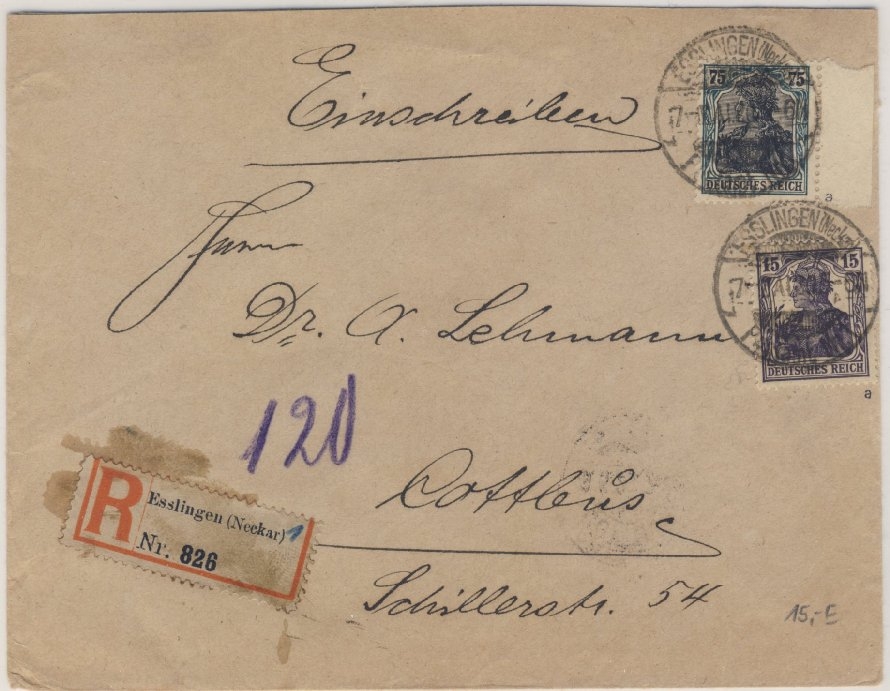 Einschreiben
ESSLINGEN (Neckar)
75 75
DEUTSCHES REICH
a
ESSLINGEN (Neckar)
15 15
DEUTSCHES REICH
a
Herrn
Dr. A. Lehmann
120
Cottbus
R
Esslingen (Neckar) 1
Nr. 826
Schillerstr. 54
15,- E